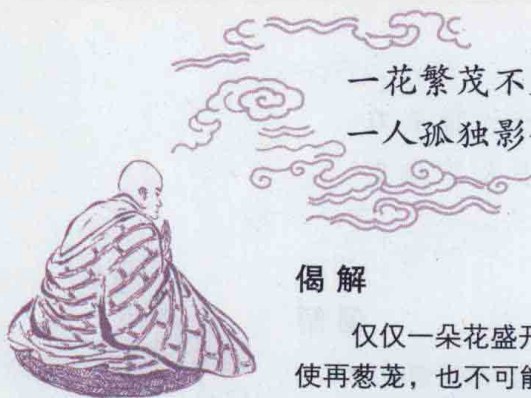 一花繁茂不
一人孤独影
偈解
仅仅一朵花盛开
使再葱茏，也不可能